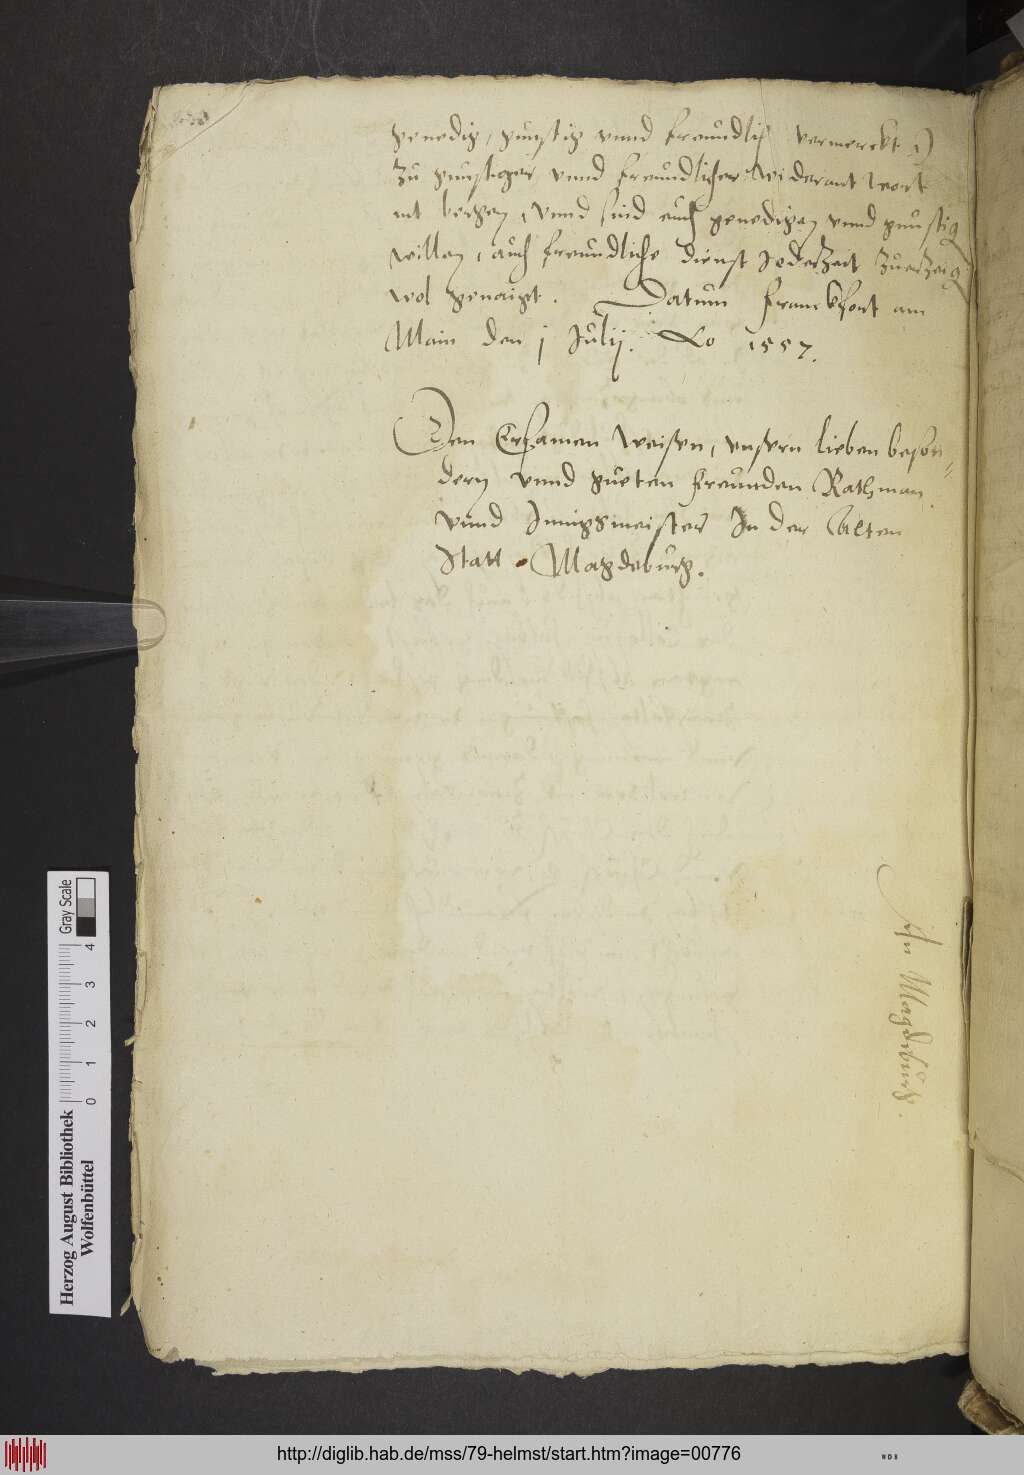 genedig, gunstig vnnd freundlich vermerckt
zu gunstiger vnnd freundlicher widerantwort
nit bergen, vnnd sind euch genedigen vnnd gunstig
willen, auch freundliche dienst Jederzeit zuerzaig
wol genaigt. Datum Franckfort am
Main den j Julij. Ao 1557.
Den Ersamen weisen, vnsern lieben beson
dern vnnd gueten freunden Rathman
vnnd Innigsmeister In der Alten
Statt Magdeburg.
An Magdeburg.
Gray Scale
0 1 2 3 4
Herzog August Bibliothek
Wolfenbüttel
http://diglib.hab.de/mss/79-helmst/start.htm?image=00776
WDB